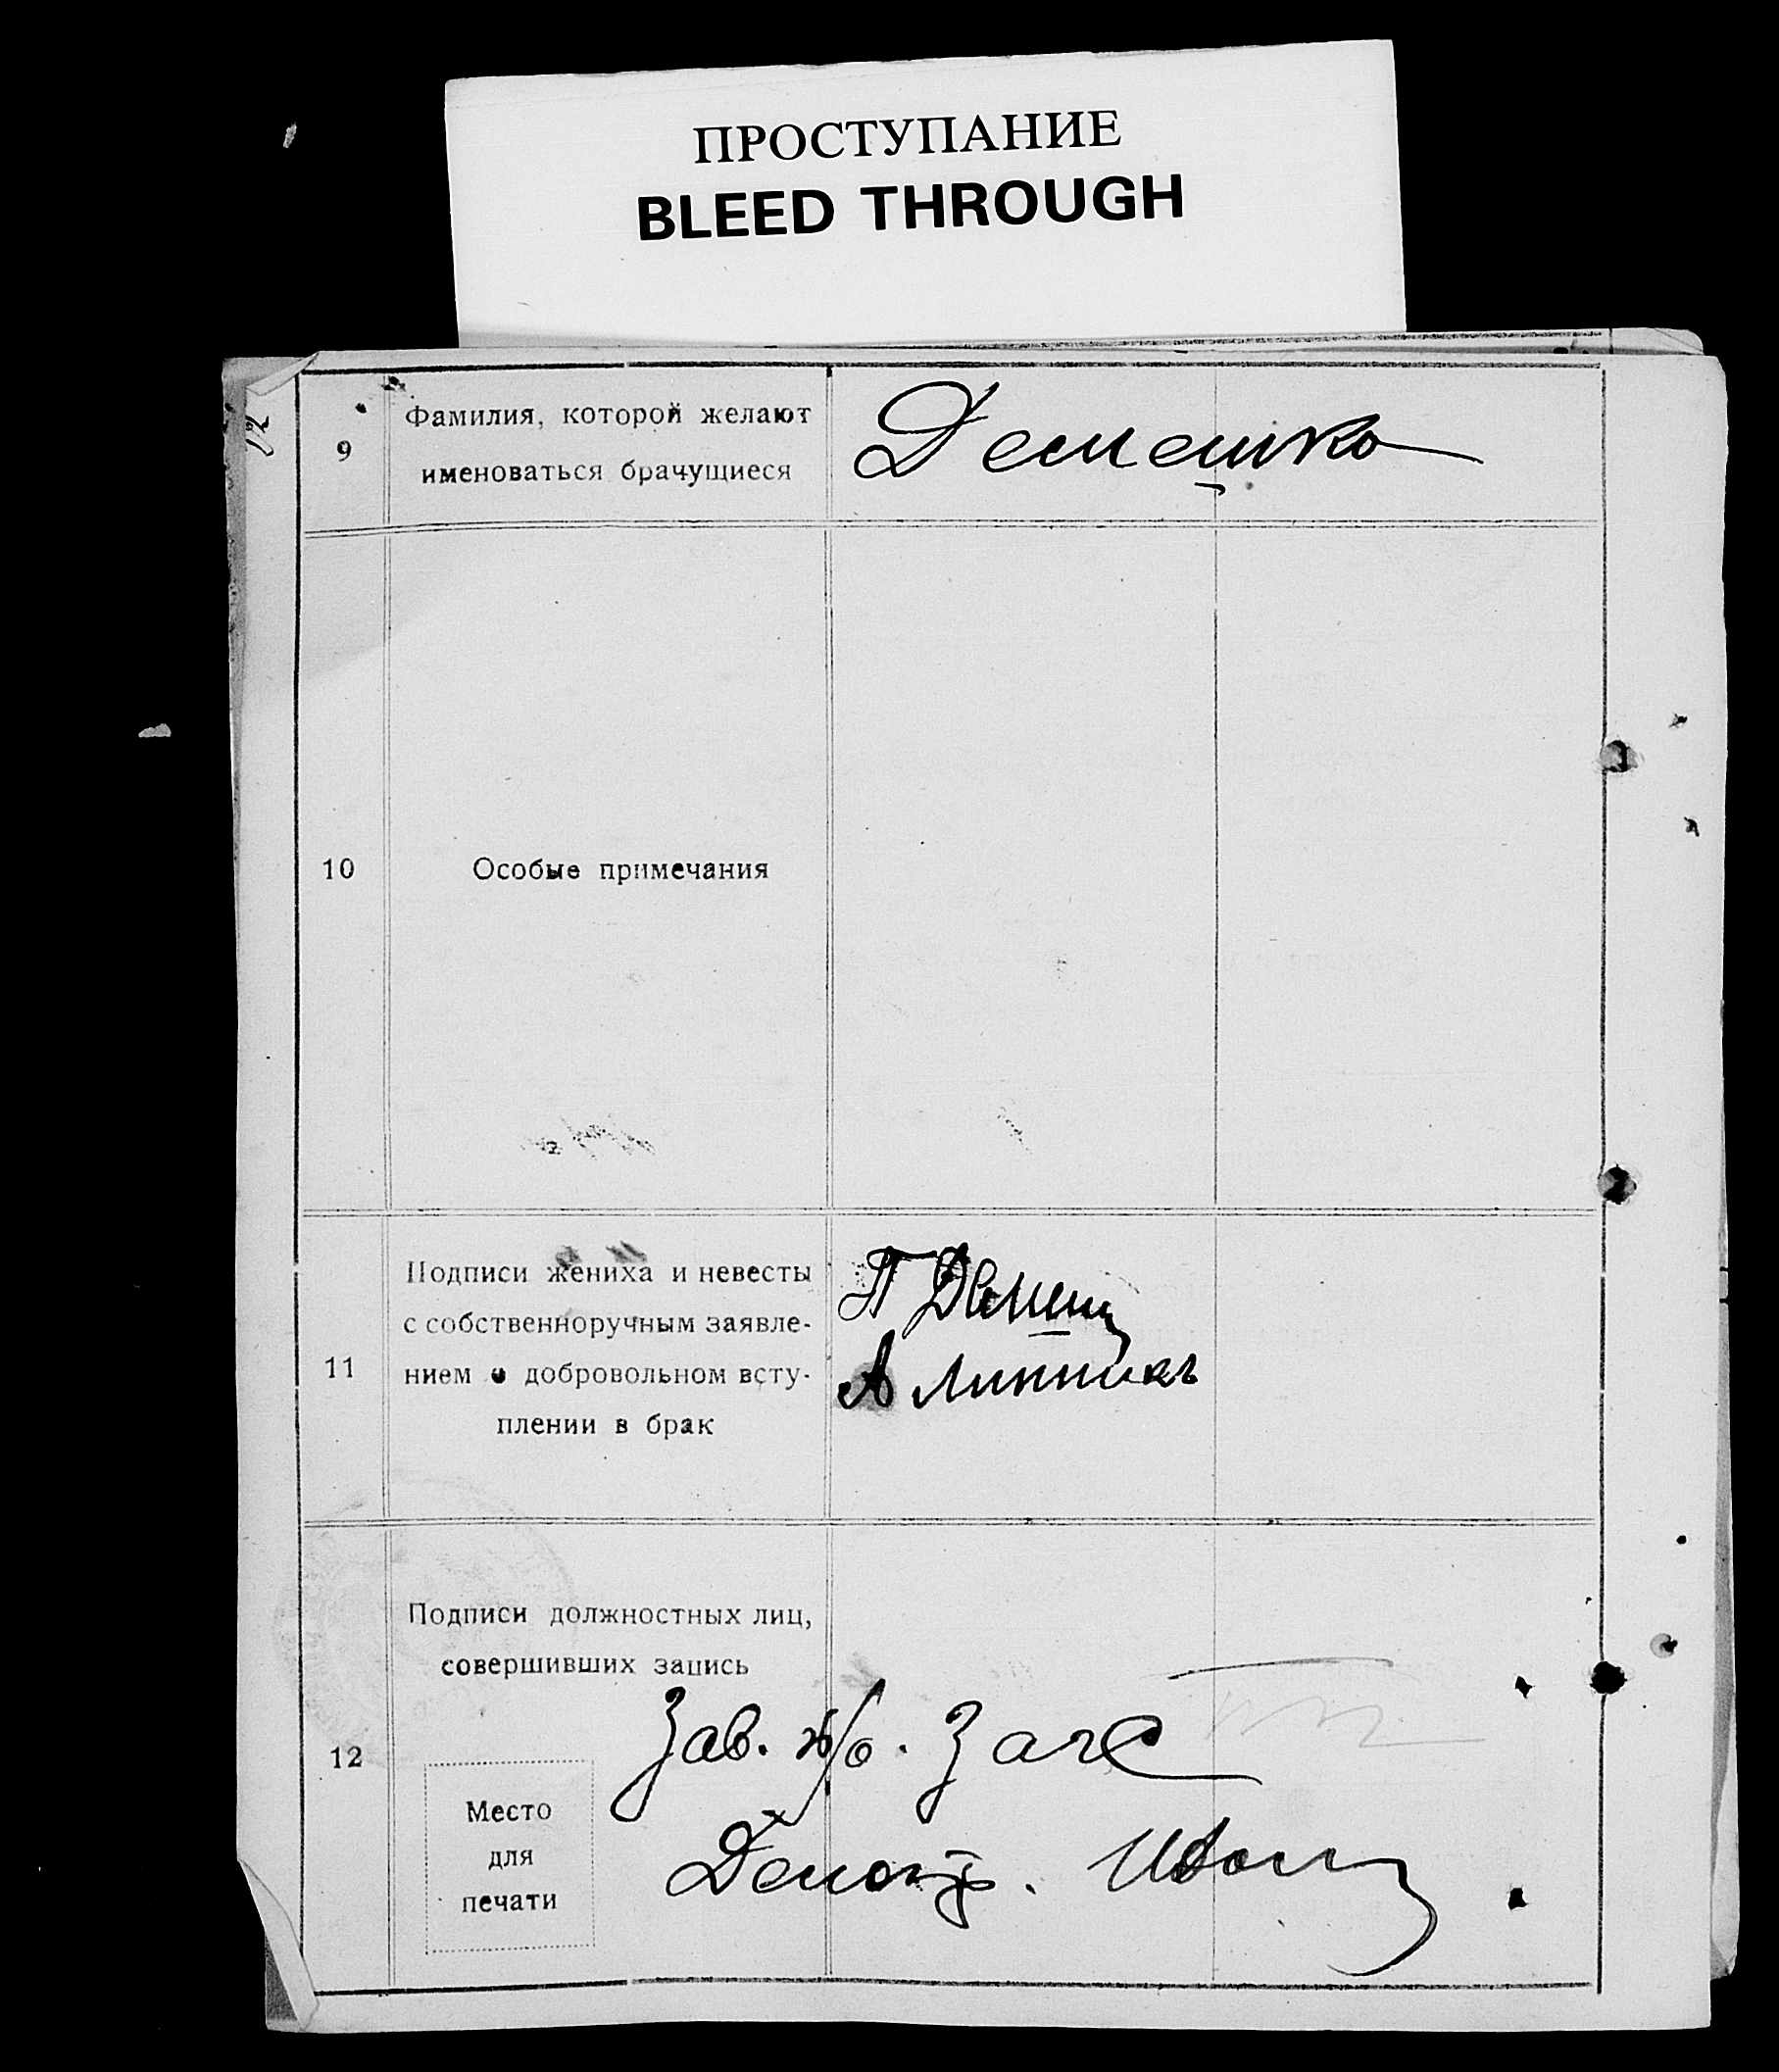 ПРОСТУПАНИЕ
BLEED THROUGH
9
Фамилия, которой желают
именоваться брачущиеся
Демешко
10
Особые примечания
11
Подписи жениха и невесты
с собственноручным заявле-
нием о добровольном всту-
плении в брак
П Демеш
А Линник
12
Подписи должностных лиц,
совершивших запись
Зав. п/о. Загс
Место
для
печати